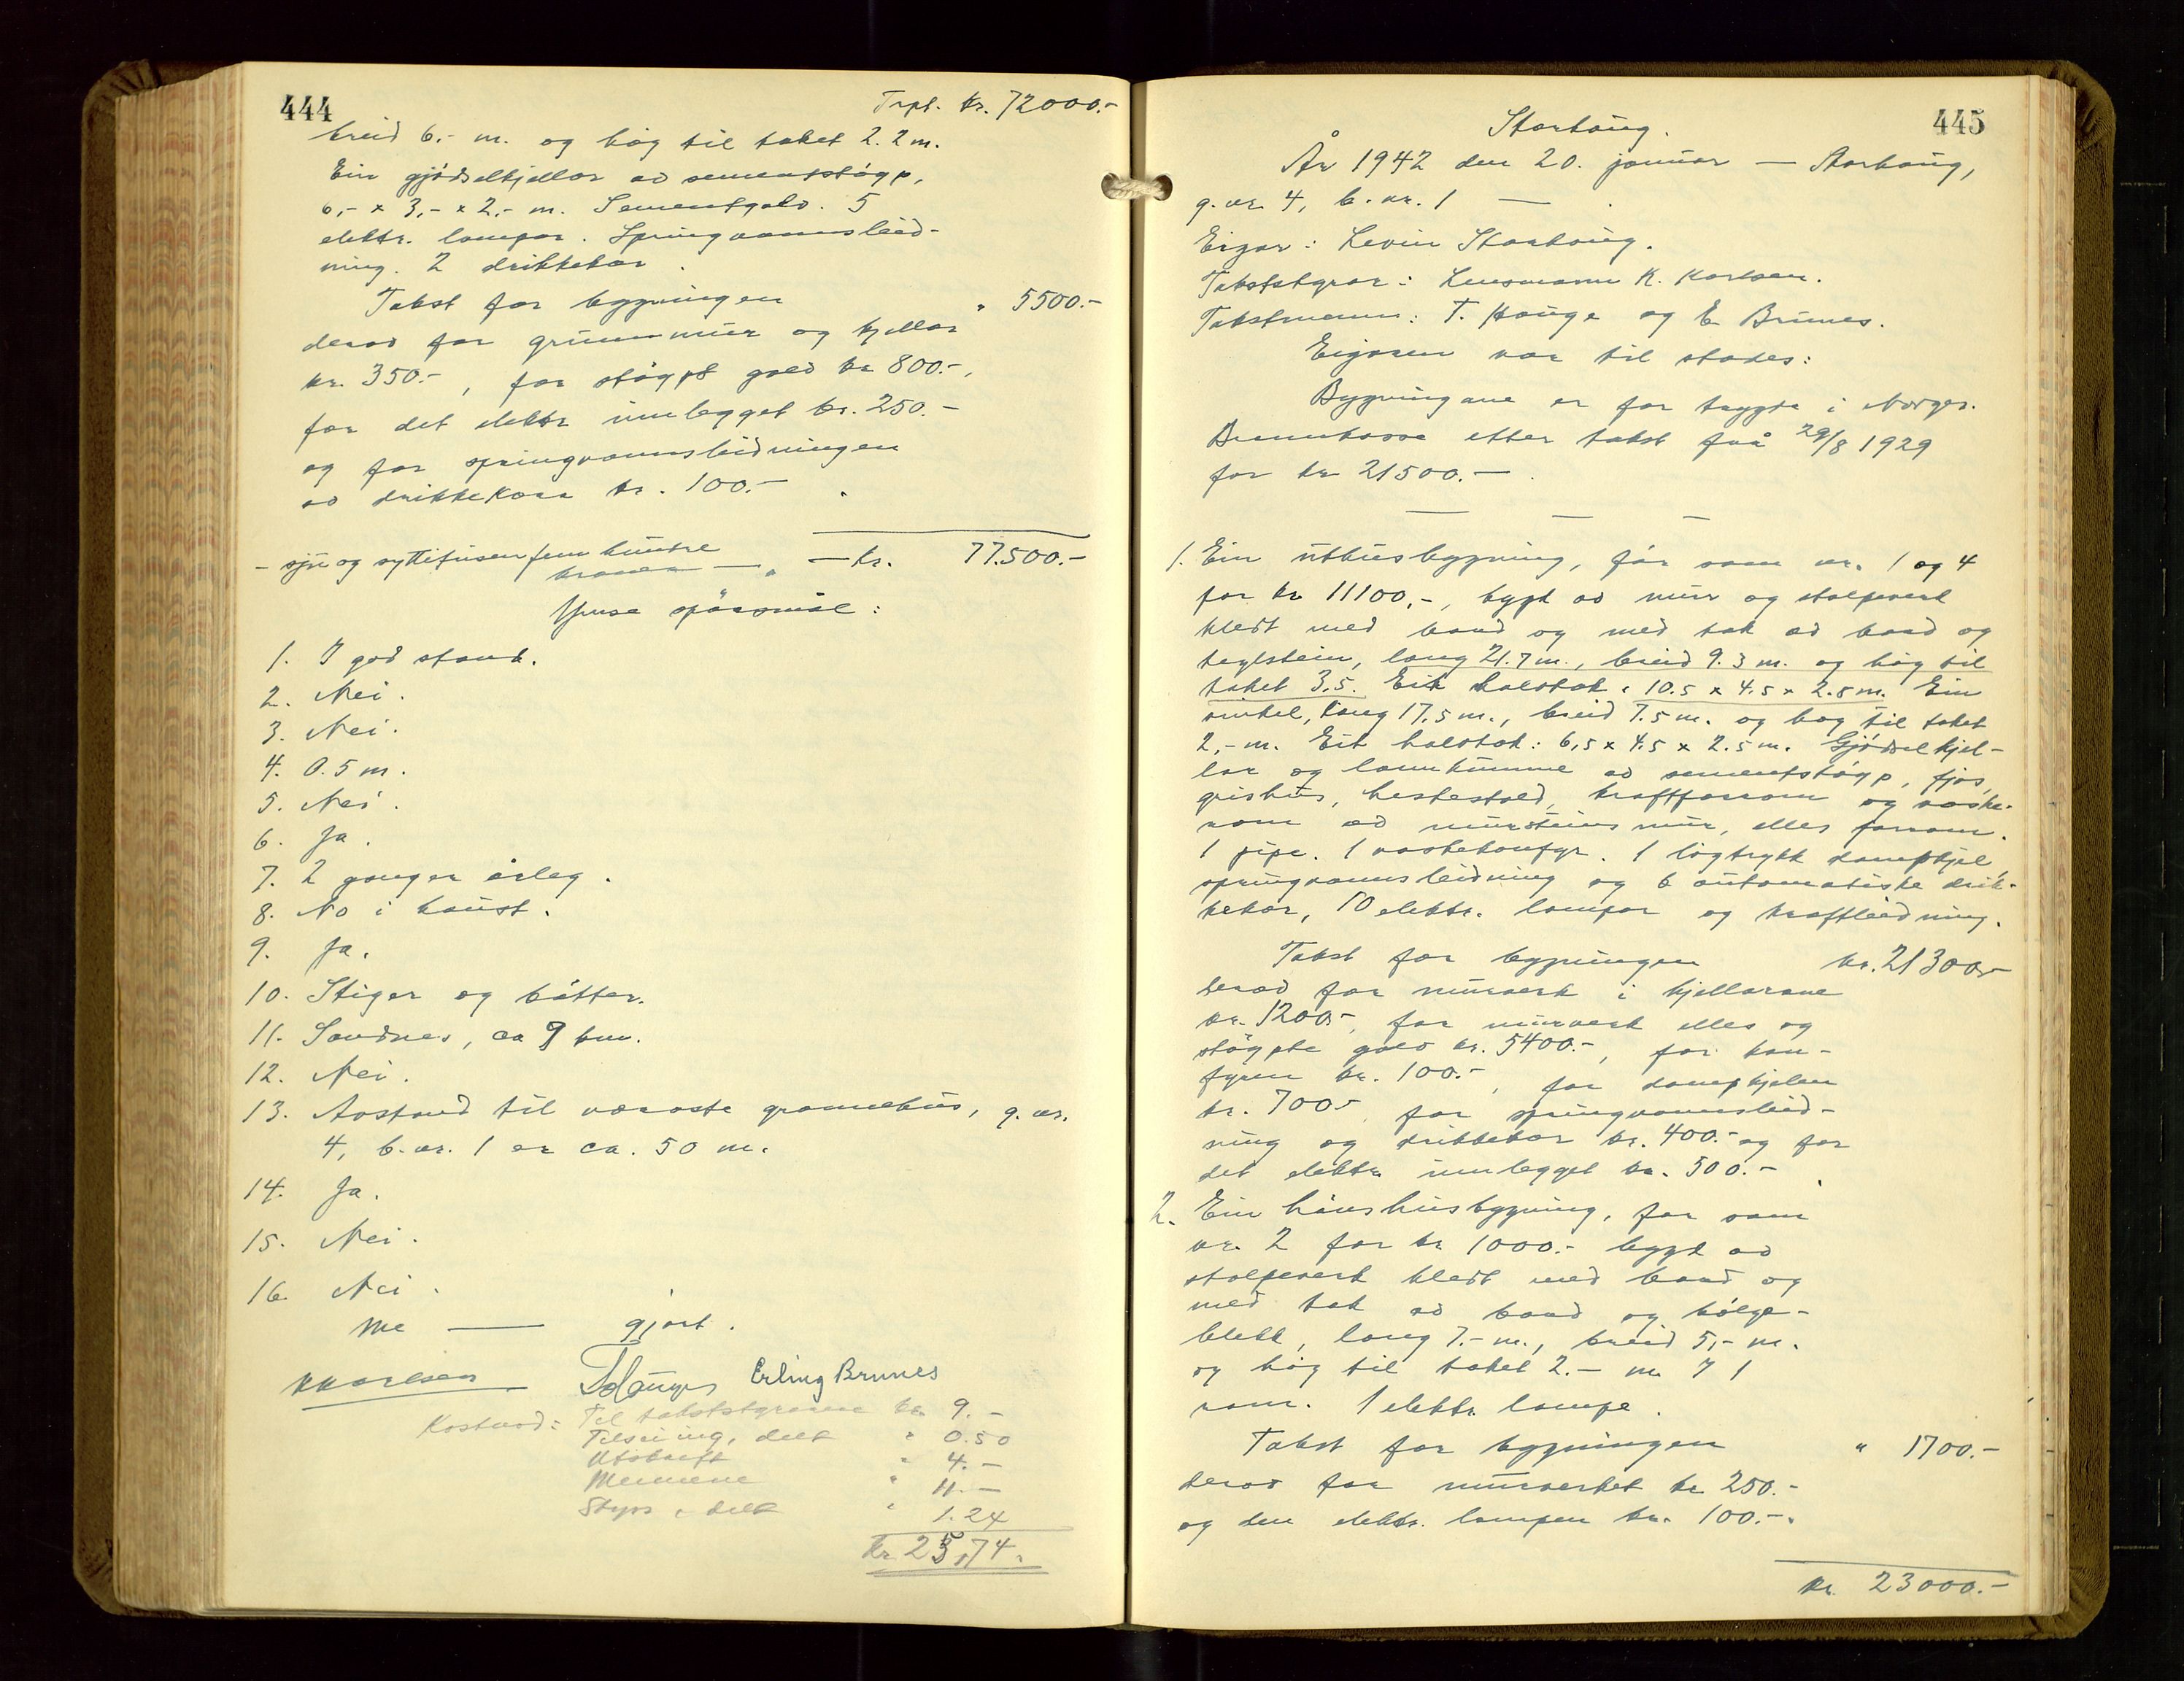 444
Trpt. kr. 72000.-
breid 6.- m. og høg til taket 2.2 m.
Ein gjødselkjellar av sementstøyp,
6,- x 3,- x 2,- m. Sementgolv. 5
elektr. lampor. Springvannsleid-
ning. 2 drikkekar.
Takst for bygningen " 5500.-
derav for grunnmur og kjellar
kr. 350.-, for støypt golv kr 800.-,
for det elektr innlegget kr. 250.-
og for springvannsleidningen
av drikkekara kr. 100.-
- sju og syttitusen fem hundre
kroner - " - kr. 77.500.-
Ymse spørsmål:
1. I god stand.
2. Nei.
3. Nei.
4. 0.5 m.
5. Nei.
6. Ja.
7. 2 ganger årleg.
8. No i haust.
9. Ja.
10. Stiger og bøtter.
11. Sandnes, ca 9 km.
12. Nei.
13. Avstand til næraste grannehus, g. nr.
4, b. nr. 1 er ca. 50 m.
14. Ja.
15. Nei.
16. Nei.
Me — gjort.
K Karlsen T Hauge Erling Brunes
Kostnad: Til takststyraren kr 9.-
Tilseiing, delt " 0.50
Utskrift " 4.-
Mennene " 11.-
Skyss, delt " 1.24
kr 25,74.
445
Starhaug.
År 1942 den 20. januar — Starhaug,
g. nr. 4, b. nr. 1 —
Eigar: Levin Starhaug.
Takststyrar: Lensmann K. Karlsen.
Takstmenn: T. Hauge og E. Brunes.
Eigaren var til stades:
Bygningane er før trygda i Norges
Brannkasse etter takst frå 29/8 1929
for kr 21500.-
1. Ein uthusbygning, før som nr. 1 og 4
for kr 11100,-, bygt av mur og stolpeverk
kledt med bord og med tak av bord og
teglstein, lang 21.7 m., breid 9.3 m. og høg til
taket 3,5. Eit halvtak: 10.5 x 4.5 x 2.8 m. Ein
vinkel, lang 17,5 m., breid 7.5 m. og høg til taket
2,- m. Eit halvtak: 6,5 x 4.5 x 2.5 m. Gjødselkjel-
lar og landkumme av sementstøyp, fjøs,
grishus, hestestald, kraftforrom og vaske-
rom av mursteinsmur, elles forrom.
1 pipe. 1 vaskekomfyr. 1 lågtrykk dampkjel,
springvannsleidning og 6 automatiske drik-
kekar, 10 elektr. lampor og kraftleidning.
Takst for bygningen kr. 21300,-
derav for murverk i kjellarane
kr. 1200,-, for murverk elles og
støypte golv kr. 5400.-, for kom-
fyren kr. 100.-, for dampkjelen
kr. 700,- for springvannsleid-
ning og drikkekar kr. 400.- og for
det elektr. innlegget kr. 500.-
2. Ein hønshusbygning, før som
nr. 2 for kr 1000.- bygt av
stolpeverk kledt med bord og
med tak av bord og bølge-
blekk, lang 7.- m., breid 5,- m.
og høg til taket 2.- m. 1
rom. 1 elektr. lampe.
Takst for bygningen " 1700.-
derav for murverket kr 250.-
og den elektr. lampen kr. 100.-.
kr. 23000.-